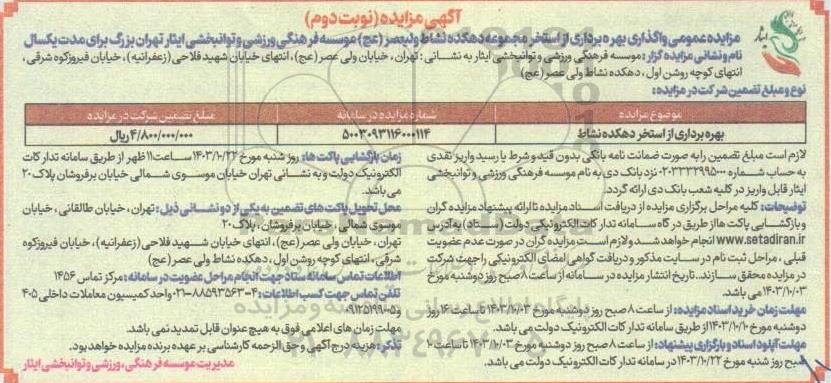 آگهی مزایده (نوبت دوم)
مزایده عمومی واگذاری بهره برداری از استخر مجموعه دهکده نشاط ولیعصر (عج) موسسه فرهنگی ورزشی و توانبخشی ایثار تهران بزرگ برای مدت یکسال
نام و نشانی مزایده گزار: موسسه فرهنگی ورزشی و توانبخشی ایثار به نشانی: تهران، خیابان ولی عصر (عج)، انتهای خیابان شهید فلاحی (زعفرانیه)، خیابان فیروزکوه شرقی،
انتهای کوچه روشن اول، دهکده نشاط ولی عصر (عج)
نوع و مبلغ تضمین شرکت در مزایده:
موضوع مزایده
شماره مزایده در سامانه
مبلغ تضمین شرکت در مزایده
بهره برداری از استخر دهکده نشاط
۵۰۰۳۰۹۳۱۱۶۰۰۰۱۱۴
۴/۸۰۰/۰۰۰/۰۰۰ ریال
لازم است مبلغ تضمین را به صورت ضمانت نامه بانکی بدون قید و شرط یا رسید واریز نقدی
به حساب شماره ۰۲۰۳۳۳۲۹۹۵۰۰۰ نزد بانک دی به نام موسسه فرهنگی ورزشی و توانبخشی
ایثار قابل واریز در کلیه شعب بانک دی ارائه گردد.
توضیحات: کلیه مراحل برگزاری مزایده از دریافت اسناد مزایده تا ارائه پیشنهاد مزایده گران
و بازگشایی پاکت ها از طریق درگاه سامانه تدارکات الکترونیکی دولت (ستاد) به آدرس
www.setadiran.ir انجام خواهد شد و لازم است مزایده گران در صورت عدم عضویت
قبلی، مراحل ثبت نام در سایت مذکور و دریافت گواهی امضای الکترونیکی را جهت شرکت
در مزایده محقق سازند. تاریخ انتشار مزایده در سامانه از ساعت ۸ صبح روز دوشنبه مورخ
۱۴۰۳/۱۰/۰۳ می باشد.
مهلت زمان خرید اسناد مزایده: از ساعت ۸ صبح روز دوشنبه مورخ ۱۴۰۳/۱۰/۰۳ تا ساعت ۱۶ روز
دوشنبه مورخ ۱۴۰۳/۱۰/۱۰ از طریق سامانه تدارکات الکترونیک دولت می باشد.
مهلت آپلود اسناد و بارگزاری پیشنهاد: از ساعت ۸ صبح روز دوشنبه مورخ ۱۴۰۳/۱۰/۰۳ تا ساعت ۱۰
صبح روز شنبه مورخ ۱۴۰۳/۱۰/۲۲ در سامانه تدارکات الکترونیک دولت می باشد.
زمان بازگشایی پاکت ها: روز شنبه مورخ ۱۴۰۳/۱۰/۲۲ ساعت ۱۱ ظهر از طریق سامانه تدارکات
الکترونیک دولت و به نشانی تهران خیابان موسوی شمالی خیابان برفروشان پلاک ۲۰
می باشد.
محل تحویل پاکت های تضمین به یکی از دو نشانی ذیل: تهران، خیابان طالقانی، خیابان
موسوی شمالی، خیابان برفروشان، پلاک ۲۰
تهران، خیابان ولی عصر (عج)، انتهای خیابان شهید فلاحی (زعفرانیه)، خیابان فیروزکوه
شرقی، انتهای کوچه روشن اول، دهکده نشاط ولی عصر (عج)
اطلاعات تماس سامانه ستاد جهت انجام مراحل عضویت در سامانه: مرکز تماس ۱۴۵۶
تلفن تماس جهت کسب اطلاعات: ۴-۸۸۵۹۳۵۶۳-۰۲۱ واحد کمیسیون معاملات داخلی ۴۰۵
مهلت زمان های اعلامی فوق به هیچ عنوان قابل تمدید نمی باشد.
تذکر: هزینه درج آگهی و حق الزحمه کارشناسی بر عهده برنده مزایده خواهد بود.
مدیریت موسسه فرهنگی، ورزشی و توانبخشی ایثار